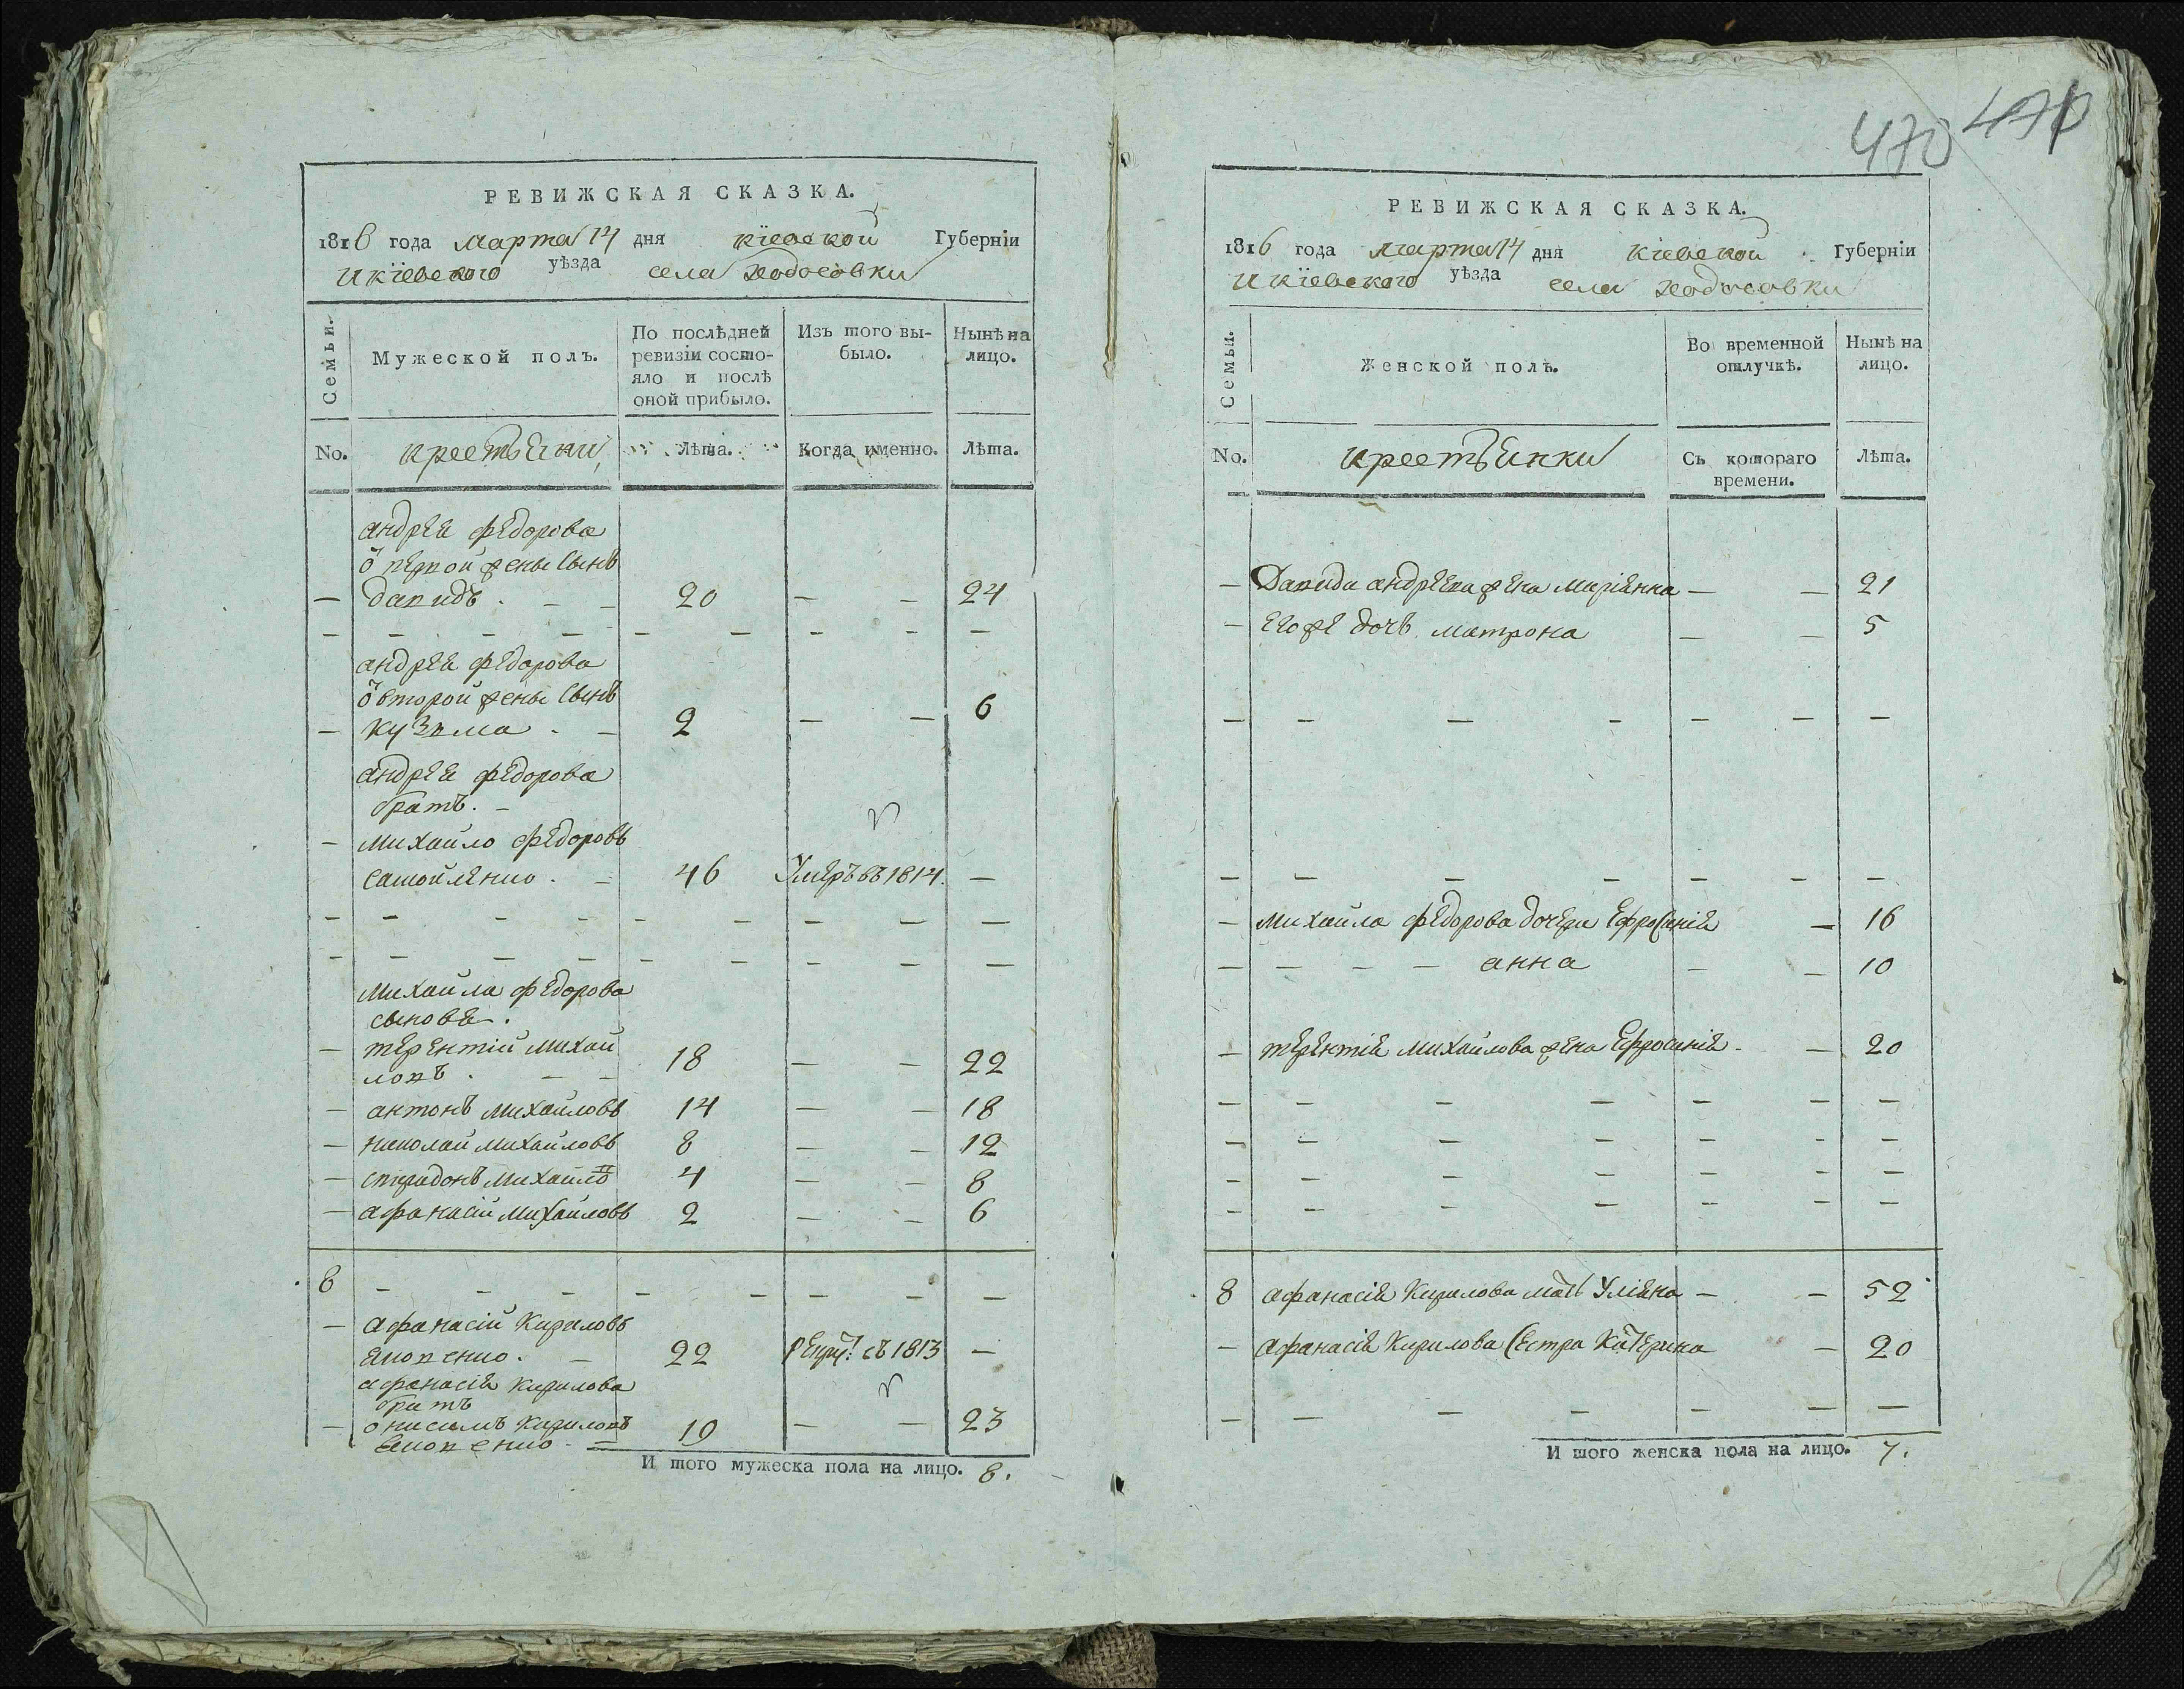 РЕВИЖСКАЯ СКАЗКА.
1816 года марта 14 дня кіевской Губерніи
и кіевского уѣзда села ходосовки
Семьи.
Мужеской полъ.
По послѣдней ревизіи состояло и послѣ оной прибыло.
Изъ того вы-было.
Нынѣ на лицо.
No. крестьяни Лѣта. Когда именно. Лѣта.
андрея федорова
ѿ первой жены сынъ
— давидъ . — — 20 — — 24
— — — — — — — — —
андрея федорова
ѿ второй жены сынъ
— кузьма . — 2 — — 6
андрея федорова
братъ. —
— михайло федоровъ
самойленко . — 46 Умеръ въ 1814. —
— — — — — — — — —
— — — — — — — — —
михайла федорова
сыновя .
— терентій михай
ловъ . — — 18 — — 22
— антонъ михайловъ 14 — — 18
— николай михайловъ 8 — — 12
— спиридонъ михайло 4 — — 8
— афанасій михайловъ 2 — — 6
8 — — — — — — — — —
— афанасій Кириловъ
яковенко . — 22 рекру: въ 1813 —
афанасія Кирилова
братъ
— онисимъ Кириловъ 19 — — 23
яковенко — —
И того мужеска пола на лицо. 8.
470 471
РЕВИЖСКАЯ СКАЗКА.
1816 года марта 14 дня кіевской Губерніи
и кіевского уѣзда села ходосовки
Семьи.
Женской полъ.
Во временной отлучкѣ.
Нынѣ на лицо.
No. крестьянки Съ котораго времени. Лѣта.
— Давида андреева жена Маріянна — — 21
— его же дочь матрона — — 5
— — — — — — —
— — — — — — —
— михайла федорова дочери Ефросинія — 16
— — — — анна — — 10
— терентія михайлова жена Ефросинія — — 20
— — — — — — —
— — — — — — —
— — — — — — —
— — — — — — —
8 афанасія Кирилова мать Уліяна — — 52
— афанасія Кирилова сестра Катерина — 20
— — — — — — —
И того женска пола на лицо. 7.